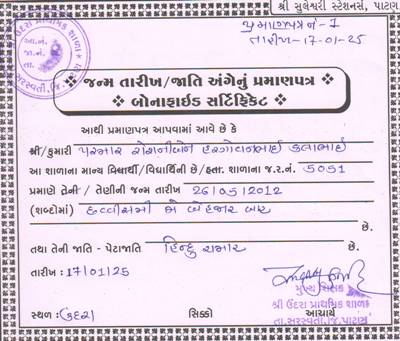 શ્રી સુલેશ્વરી સ્ટેશનર્સ, પાટણ
પ્રમાણપત્ર નં - 1
તારીખ - 17-01-25
ઉંદરા પ્રાથમિક શાળા
સરસ્વતી, જિ.
જન્મ તારીખ/જાતિ અંગેનું પ્રમાણપત્ર
બોનાફાઈડ સર્ટિફિકેટ
આથી પ્રમાણપત્ર આપવામાં આવે છે કે
શ્રી/કુમારી પરમાર રોશનીબેન હરગોવનભાઈ કલાભાઈ
આ શાળાના માન્ય વિદ્યાર્થી/વિદ્યાર્થિની છે/હતા. શાળાના જ.ર.નં. 5051
પ્રમાણે તેની / તેણીની જન્મ તારીખ 26/05/2012
(શબ્દોમાં) છવ્વીસમી મે બેહજાર બાર
છે.
તથા તેની જાતિ - પેટાજાતિ હિન્દુ ચમાર છે.
તારીખ : 17/01/25
મુખ્ય શિક્ષક
શ્રી ઉંદરા પ્રાથમિક શાળા
સ્થળ : ઉંદરા સિક્કો આચાર્ય
તા.સરસ્વતી, જિ.પાટણ